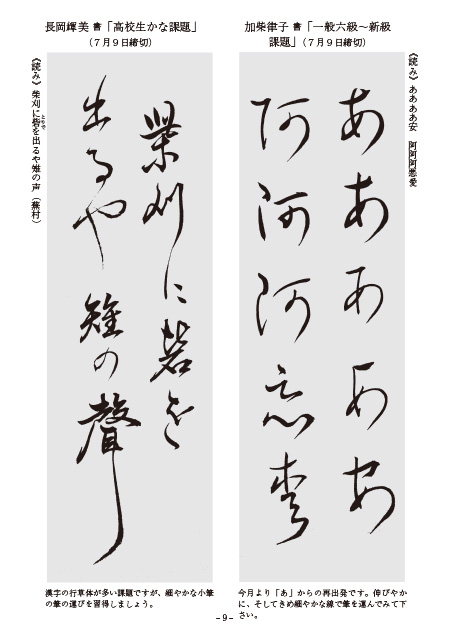 加柴律子 書「一般六級〜新級
課題」（7月9日締切）
《読み》ああああ安 阿阿阿悪愛
あああああ
阿阿阿悪愛
今月より「あ」からの再出発です。伸びやか
に、そしてきめ細やかな線で筆を運んでみて下
さい。
長岡輝美 書「高校生かな課題」
（7月9日締切）
柴刈に砦を
出るや雉の聲
《読み》柴刈に砦を出るや雉の声（蕪村）
とりで
漢字の行草体が多い課題ですが、細やかな小筆
の筆の運びを習得しましょう。
- 9 -